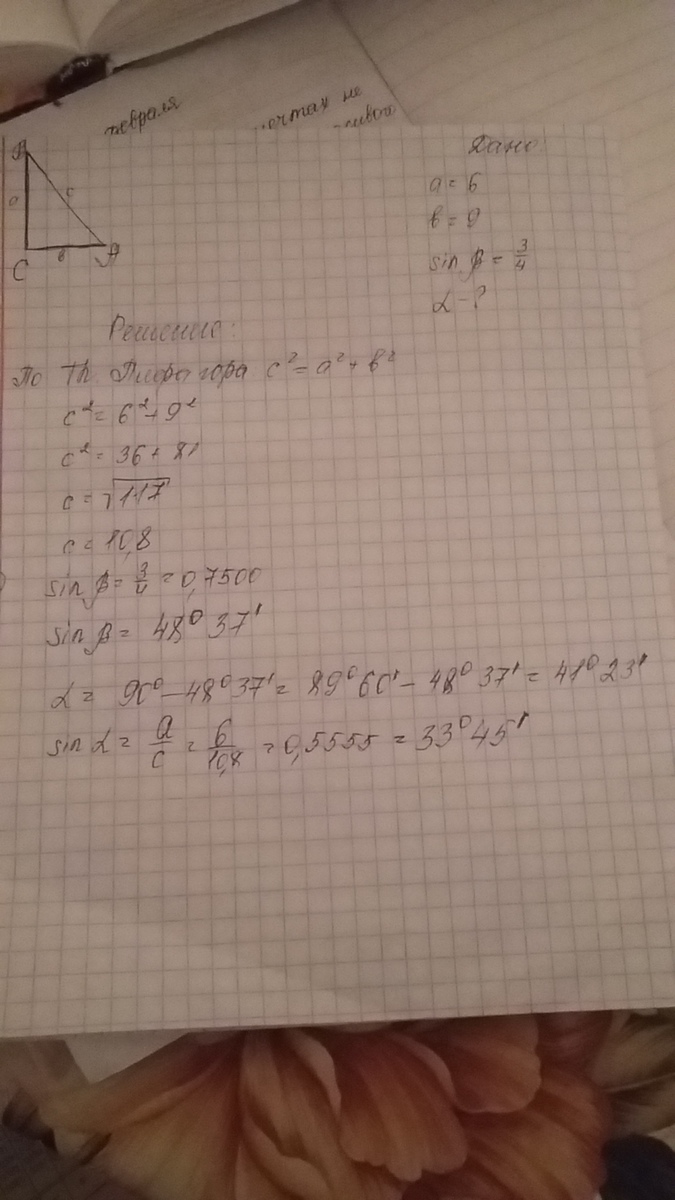 февраля
мечтах не
Дано
B
a = 6
a
c
b = 9
sin β = 3/4
C
b
A
α - ?
Решение:
По Th. Пифагора c² = a² + b²
c² = 6² + 9²
c² = 36 + 81
c = √117
c = 10,8
sin β = 3/4 = 0,7500
sin β = 48° 37'
α = 90° - 48° 37' = 89° 60' - 48° 37' = 41° 23'
sin α = a/c = 6/10,8 = 0,5555 = 33° 45'